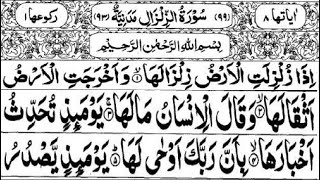 اٰیاتها ٨ (٩٩) سُوْرَةُ الزِّلْزَالِ مَدَنِیَّةٌ (٩٣) رکوعها ١
بِسْمِ اللّٰهِ الرَّحْمٰنِ الرَّحِیْمِ
اِذَا زُلْزِلَتِ الْاَرْضُ زِلْزَالَهَا ۙ١ وَاَخْرَجَتِ الْاَرْضُ
اَثْقَالَهَا ۙ٢ وَقَالَ الْاِنْسَانُ مَا لَهَا ۚ٣ یَوْمَىِٕذٍ تُحَدِّثُ
اَخْبَارَهَا ۙ٤ بِاَنَّ رَبَّكَ اَوْحٰی لَهَا ؕ٥ یَوْمَىِٕذٍ یَّصْدُرُ